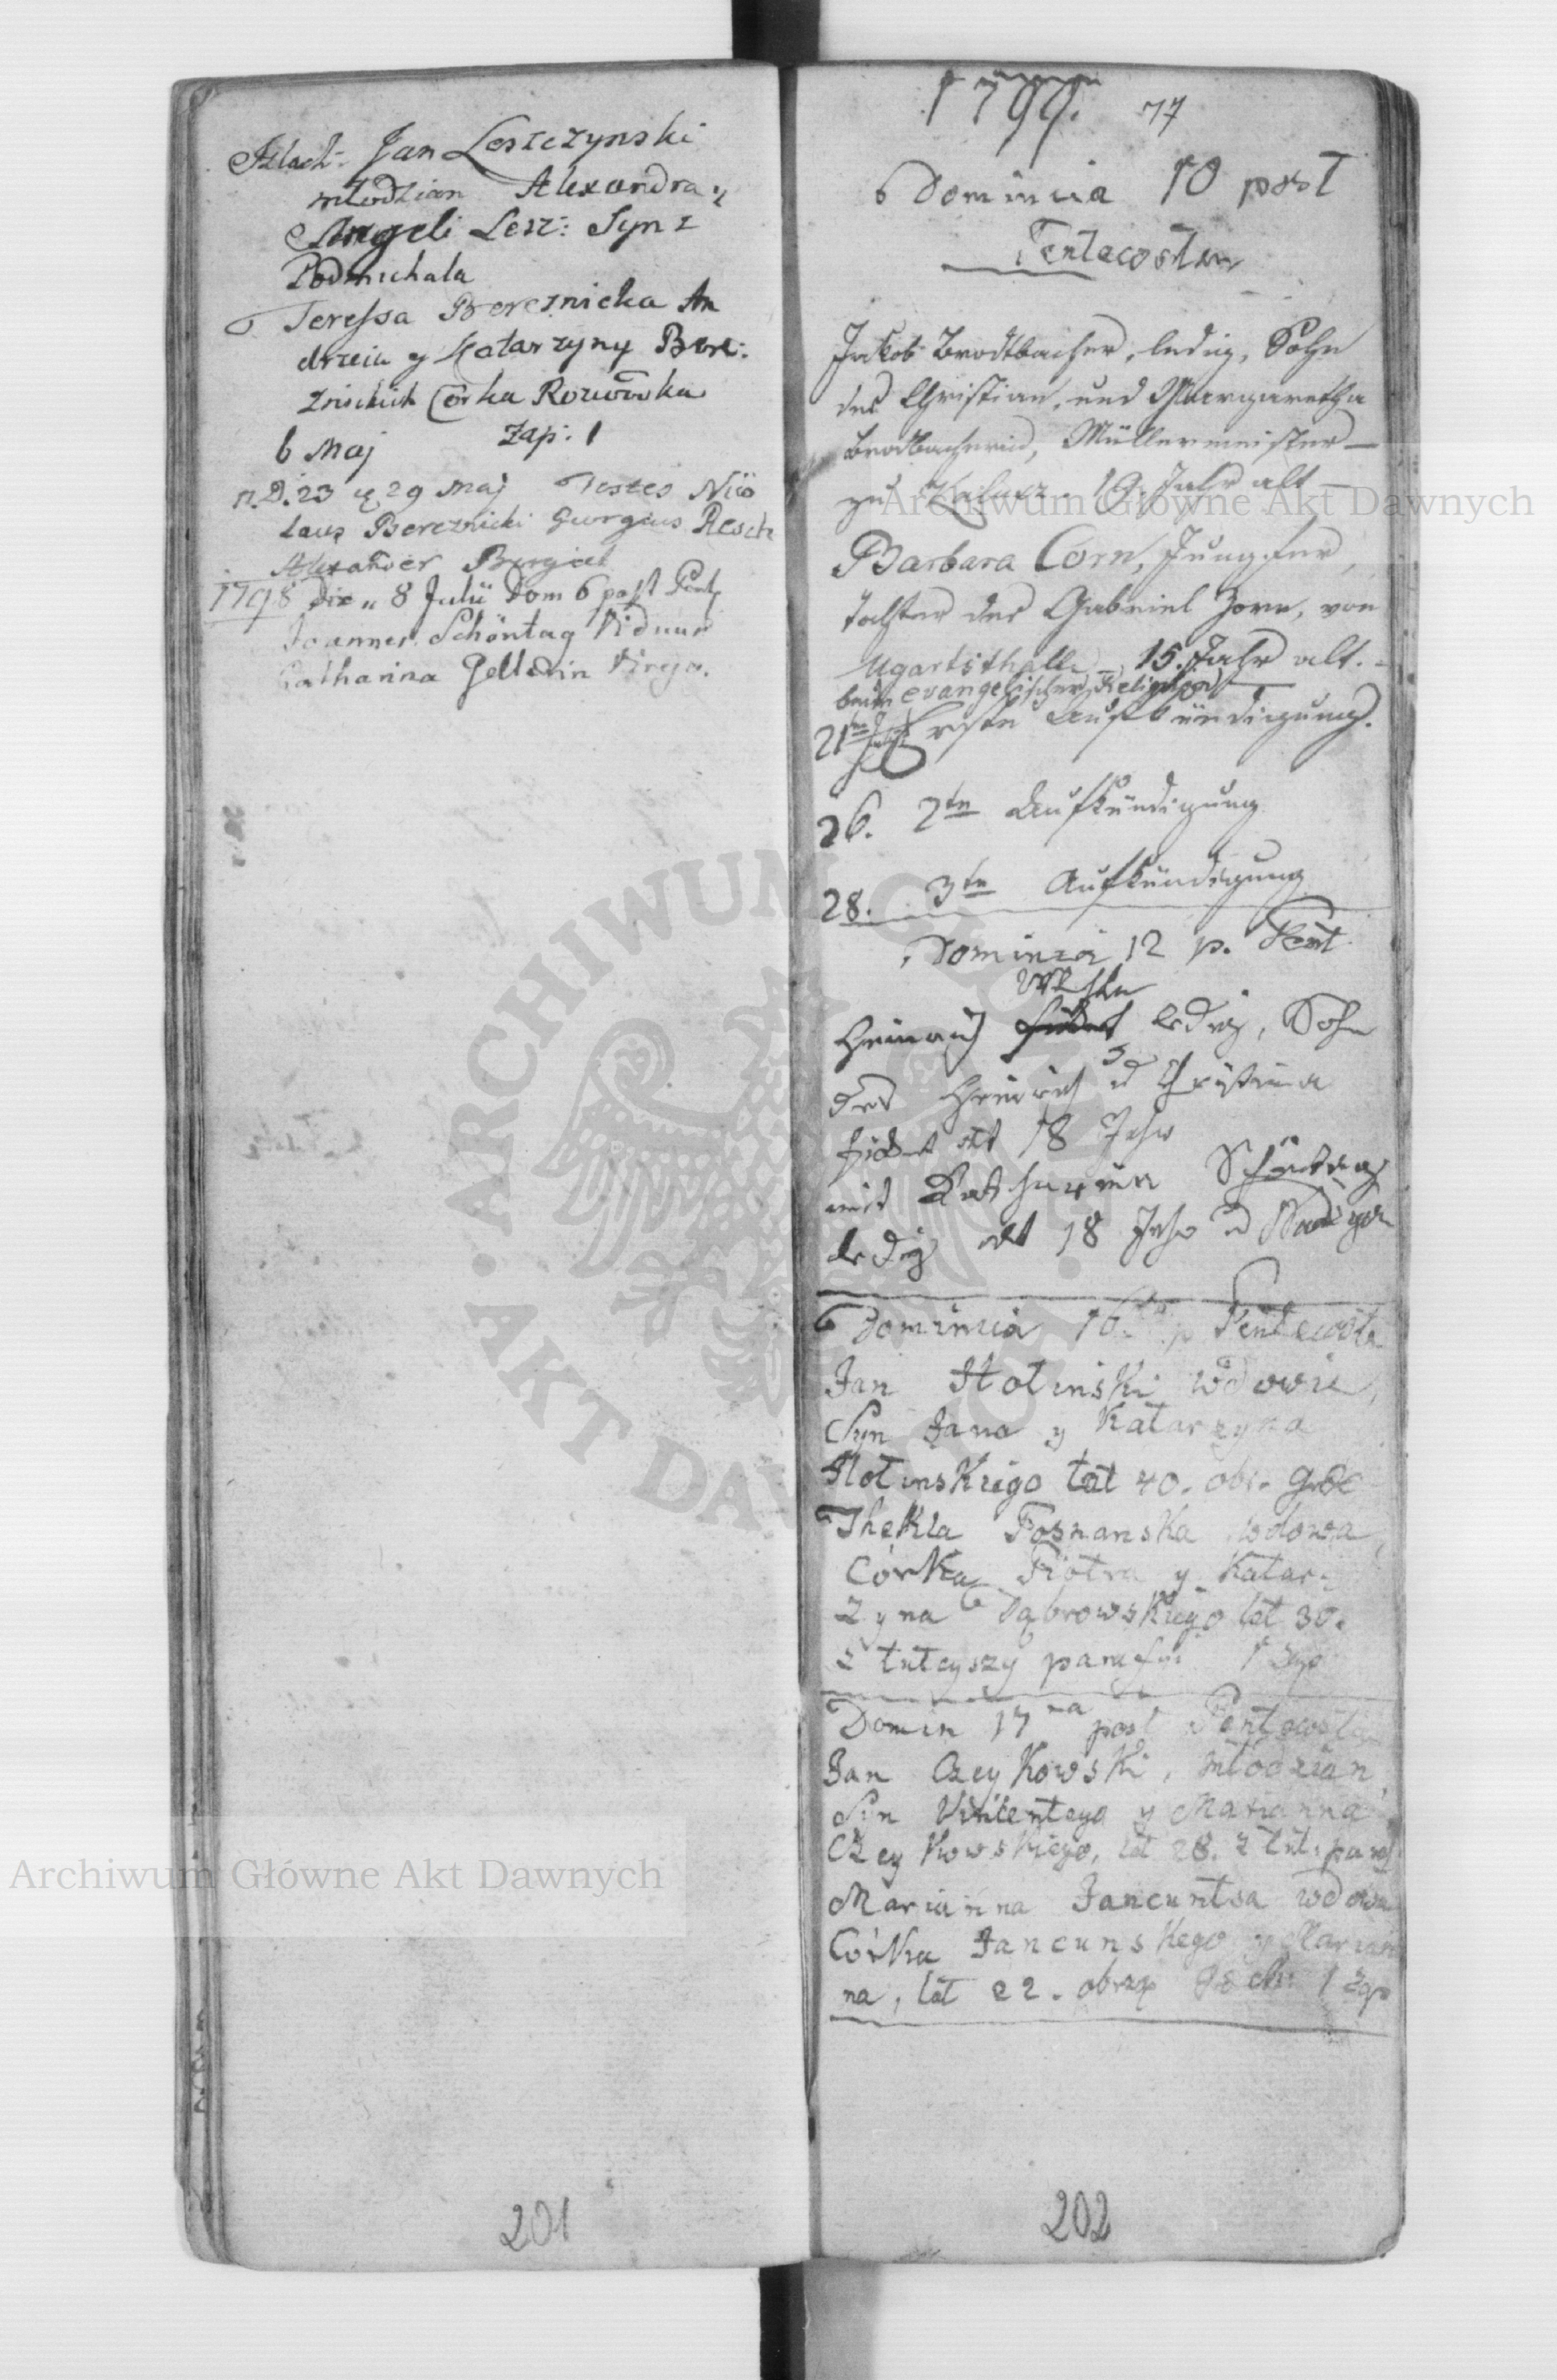 Szlach: Jan Leszczynski
młodzian Alexandra y
Angeli Lesz: Syn z
Podmichala
Teressa Bereznicka An
drzeia y Katarzyny Bere:
znickich Corka Rozwowka
6 Maj Zap: 1
n. D. 23 et 29 Maj Testes Nico
laus Bereznicki Georgius Resch
Alexander
1798 die 8 Julii Dom 6 post Pent
Joannes Schöntag Viduus
Catharina Virgo.
201
1799. 77
Dominica 10 post
Pentecosten
Jakob Brodtbacher, ledig, Sohn
des Christian, und Margaretha
Brodbacherin, Müllermeister
zu 19. Jahr alt
Barbara Corn, Jungfer,
Tochter des Gabriel Corn, von
Ugartsthall, 15. Jahr alt.
beide evangelischer Religion
21ten Erste Aufkündigung.
26. 2te Aufkündigung
28. 3te Aufkündigung
Dominica 12 p. Pent
Heinrich ledig, Sohn
des Heinrich Christina
alt 18 Jahr
mit Katharina Schöntag
ledig alt 18 Jahr
Dominica 16 p Pentecoste
Jan Hotinski wdowiec,
Syn Jana y Katarzyna
Hotinskiego lat 40. obr.
Thekla Posnanska wdowa,
Córka Piotra y Katar
zyna Dąbrowskiego lat 30.
z tuteyszy parafyi 1 Zap
Domin 17ma post Pentecoste
Jan Czeykowski, młodzian,
Syn Vincentego y Marianna
Czeykowskiego, lat 28. z tut: paraf
Marianna Jancuntsa wdowa
Córka Jancunskego y Marian
na, lat 22. obrzą 1 Zap
202
Archiwum Główne Akt Dawnych
Archiwum Główne Akt Dawnych
ARCHIWUM GŁÓWNE AKT DAWNYCH